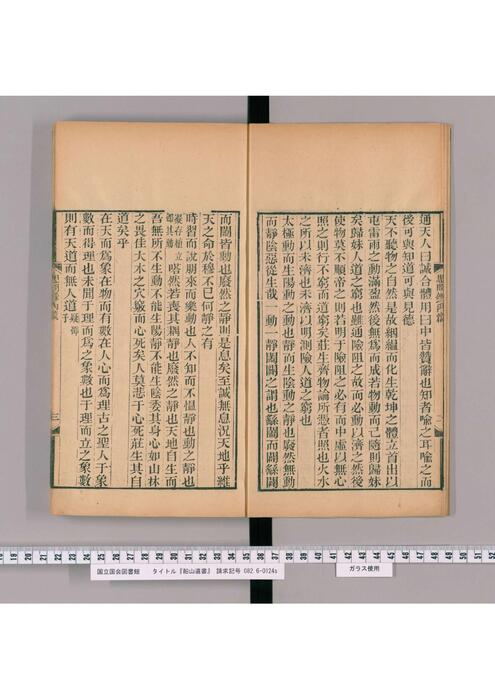 通天人曰誠合體用曰中皆贊辭也知者喻之耳喻之而
後可與知道可與見德
天不聽物之自然是故絪縕而化生乾坤之體立首出以
屯雷雨之動滿盈然後無爲而成若物動而己隨則歸妹
矣歸妹人道之窮也雖通險阻之故而必動以濟之然後
使物莫不順帝之則若明于險阻之必有而中虛以無心
照之則行不窮而道窮矣莊生齊物論所憑者照也火水
之所以未濟也未濟以明測險人道之窮也
太極動而生陽動之動也靜而生陰動之靜也廢然無動
而靜陰惡從生哉一動一靜闔闢之謂也繇闔而闢繇闢
思問錄內篇
二
而闔皆動也廢然之靜則是息矣至誠無息況天地乎維
天之命於穆不已何靜之有
時習而說朋來而樂動也人不知而不慍靜也動之靜也
凝存植立卽其動嗒然若喪其耦靜也廢然之靜也天地自生而
吾無所不生動不能生陽靜不能生陰委其身心如山林
之畏佳大木之穴竅而心死矣人莫悲于心死莊生其自
道矣乎
在天而爲象在物而有數在人心而爲理古之聖人于象
數而得理也未聞于理而爲之象數也于理而立之象數
則有天道而無人道疑邵子
三
国立国会図書館 タイトル『船山遺書』 請求記号 082.6-O124s
ガラス使用
19 20 21 22 23 24 25 26 27 28 29 30 31 32 33 34 35 36 37 38 39 40 41 42 43 44 45 46 47 48 49 50 51 52